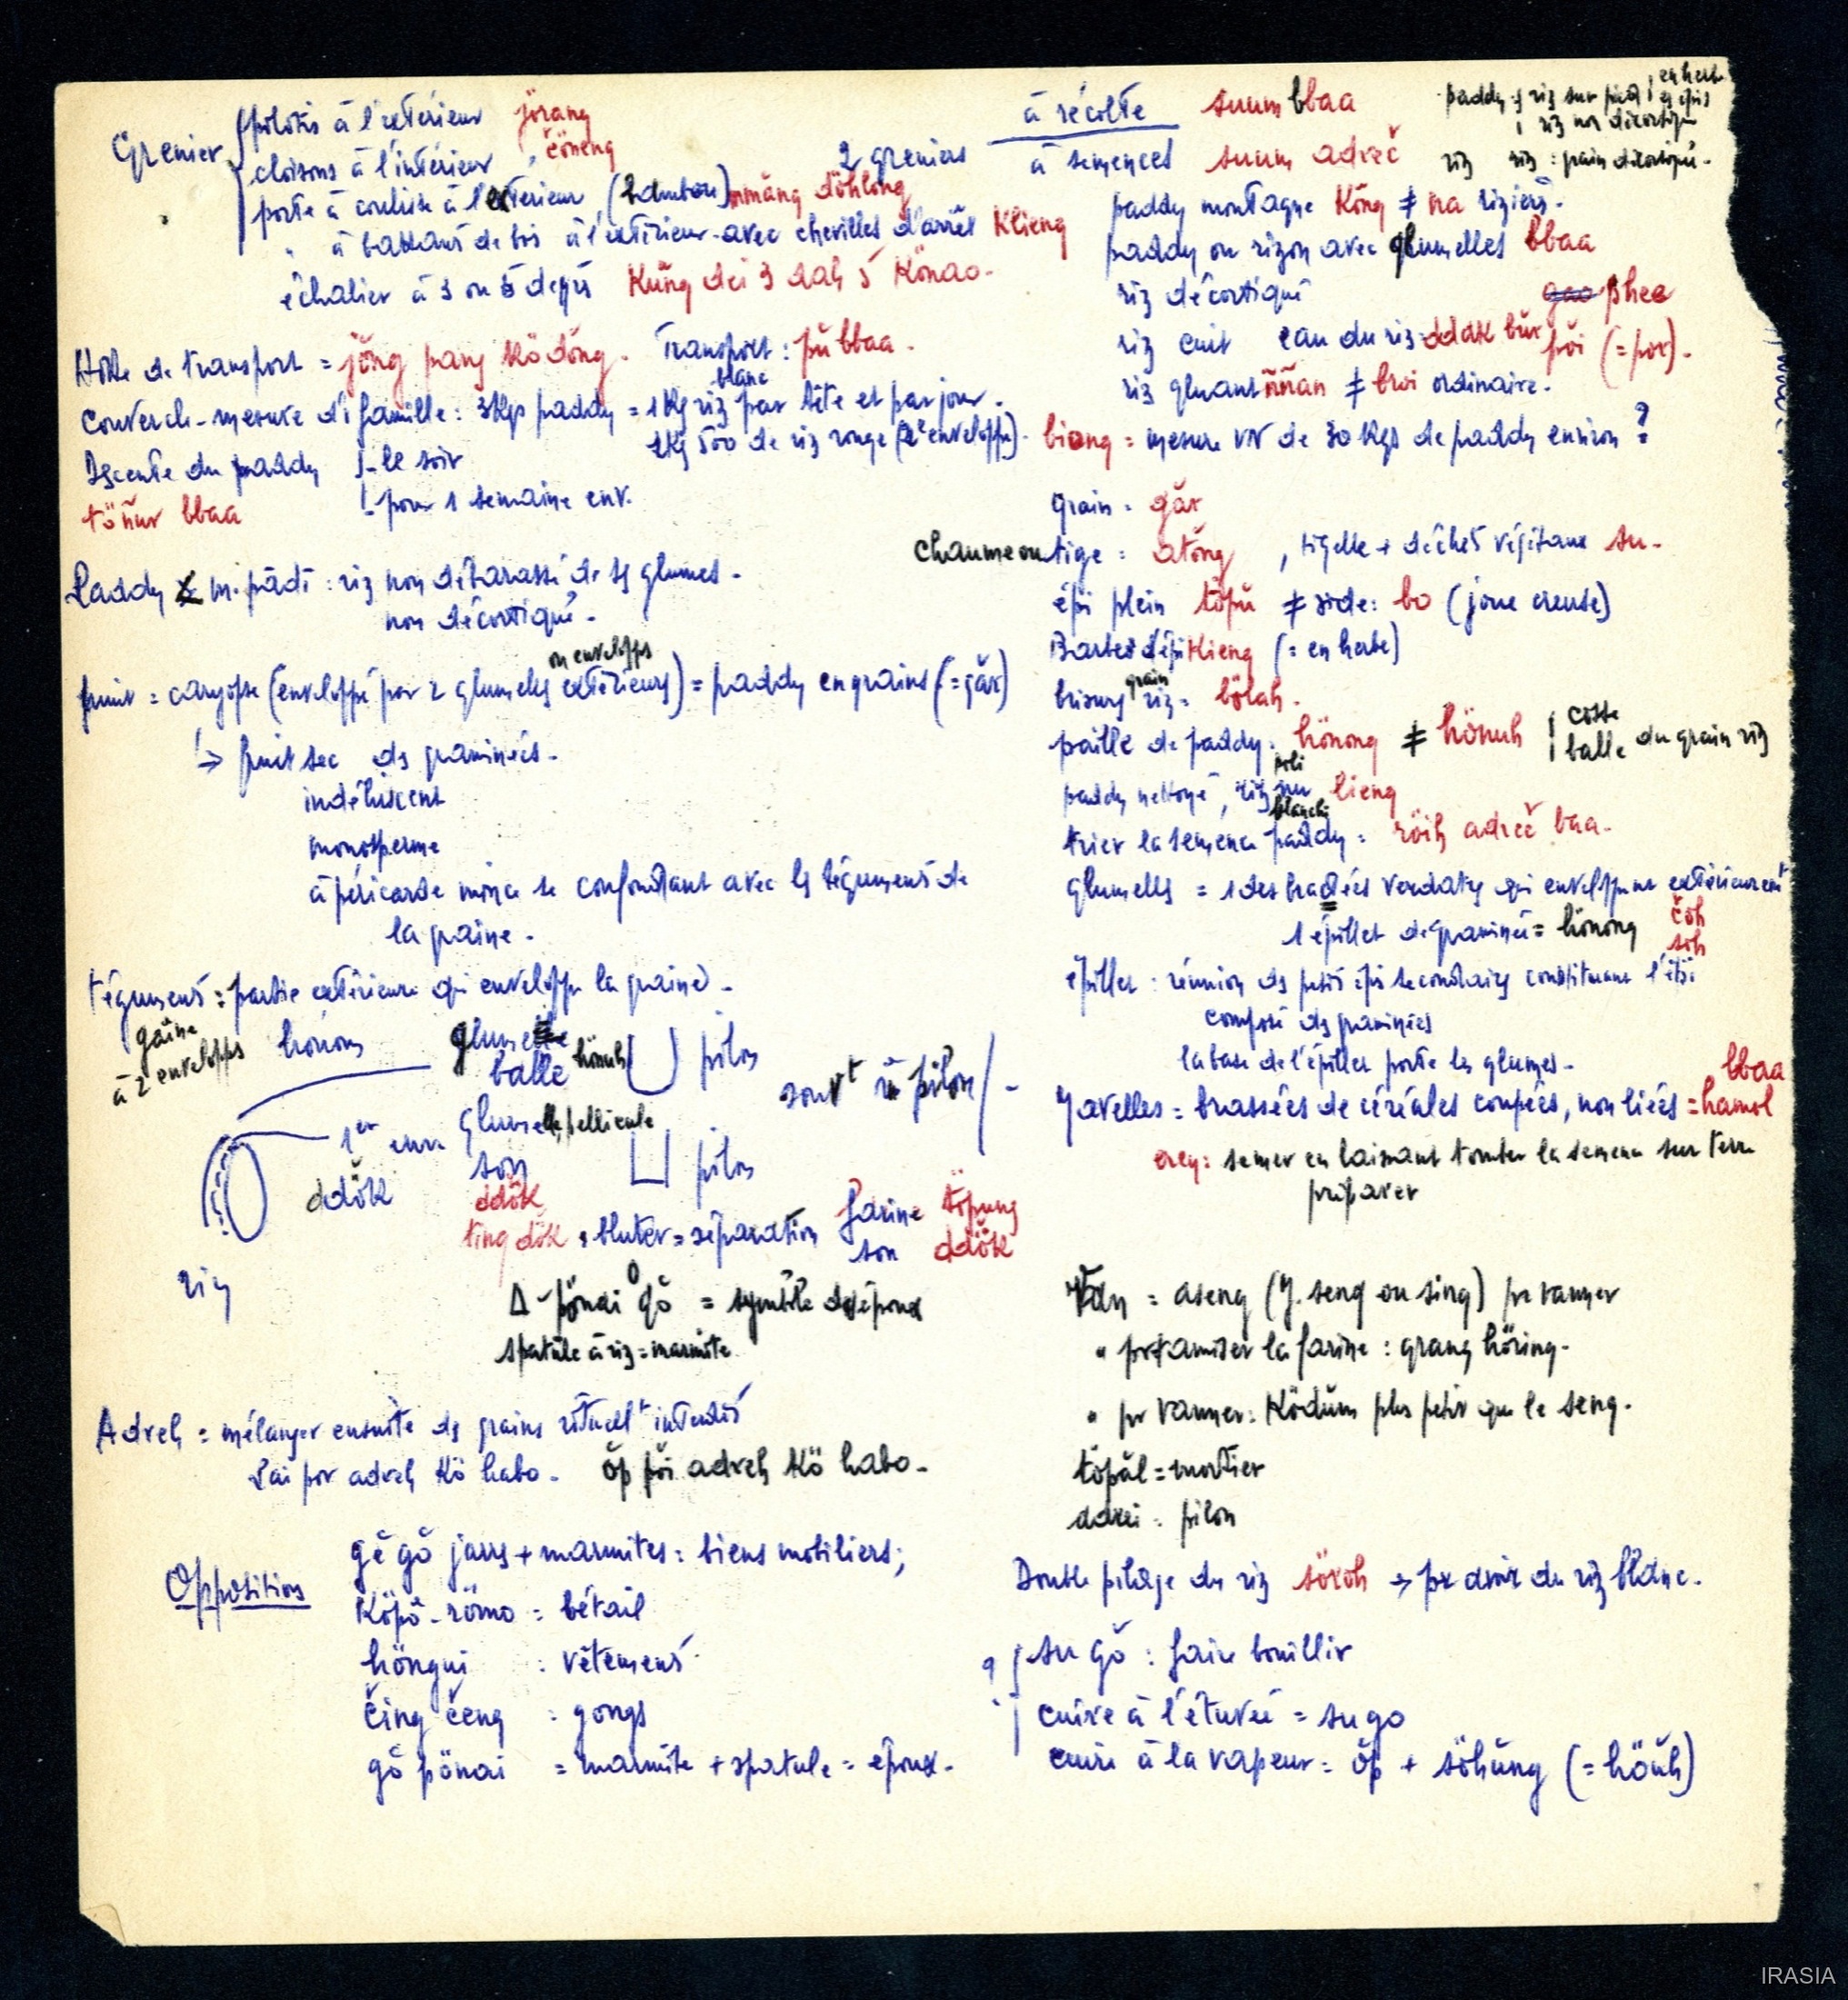 Grenier
pilotis à l'extérieur jörang
cloisons à l'intérieur, čöneng
porte à coulisse à l'extérieur (bambou) mmăng döhlong
" à battant de bois à l'extérieur avec chevilles d'arrêt Klieng
échalier à 3 ou 5 degrés Kŭng dei 3 dah 5 Könao.
2 greniers
à récolte suum bbaa
à semences suum adreč
paddy riz sur pied en herbe
en épis
riz non décortiqué
riz riz : grain décortiqué.
paddy montagne Kông ≠ na rizière.
paddy ou rizon avec glumelles bbaa
riz décortiqué gao phee
riz cuit eau du riz ddak bŭr pŏi (= por).
riz gluant ññan ≠ broi ordinaire.
biong = mesure VN de 30 Kgs de paddy environ ?
Hotte de transport = jŏng pang ködŏng. Transport : pŭ bbaa.
couvercle-mesure de famille : 3Kgs paddy = 1 Kg riz blanc par tête et par jour.
1Kg 500 de riz rouge (2e enveloppe).
Descente du paddy
- le soir
- pour 1 semaine env.
töñur bbaa
Paddy m. pādī : riz non débarassé de ses glumes.
non décortiqué.
fruit = caryopse (enveloppé par 2 glumelles extérieures) = paddy en grains (= găr)
ou enveloppes
↳ fruit sec des graminées.
indéhiscent
monosperme
à péricarde mince se confondant avec les téguments de
la graine.
téguments : partie extérieure qui enveloppe la graine.
grain = găr
chaume ou tige = atŏng, tigelle + déchet végétaux su.
épi plein töpŭ ≠ vide : bo (joue creuse)
Barbes d'épi Klieng (= en herbe)
brisures grain riz = bölah.
paille de paddy : hönong ≠ hönuh
cosse
balle du grain riz
paddy nettoyé, riz nu lieng
poli
blanchi
trier la semence paddy = röih adreč baa.
glumelles = 1 des bractées verdâtres qui enveloppent extérieuremt
1 épillet de graminée = hönong čŏh
söh
épillet : réunion des petits épis secondaires constituant l'épi
composé des graminées
la base de l'épillet porte les glumes.
Javelles = brassées de céréales coupées, non liées = hamol
bbaa
creg : semer en laissant tomber la semence sur terre
préparer
gaine
à 2 enveloppes
hönong
glume
balle hönuh
pilon
sont
1er env.
ddŏk
glumelle, pellicule
son
ddŏk
pilon
ting dŏk = bluter = séparation
farine töpung
son ddŏk
riz
Δ - pönai gŏ = symbole des époux
spatule à riz = marmite
Van = aseng (J. seng ou sing) pr vanner
" pr tamiser la farine : grang höring.
" pr vanner : Ködŭm plus petit que le seng.
töpăl = mortier
adrei : pilon
Adreh = mélanger ensuite des grains rituelt interdits
Lai por adreh Kö habo. ŏp pŏi adreh Kö habo.
Opposition
gĕ gŏ jarres + marmites : biens mobiliers ;
Köpô-römo = bétail
höngui : vêtements
čing čeng : gongs
gŏ pönai = marmite + spatule = époux.
Double pilage du riz söroh → pr avoir du riz blanc.
?
su gŏ : faire bouillir
cuire à l'étuvée = su go
cuire à la vapeur = ŏp + söhŭng (= höŭh)
IRASIA